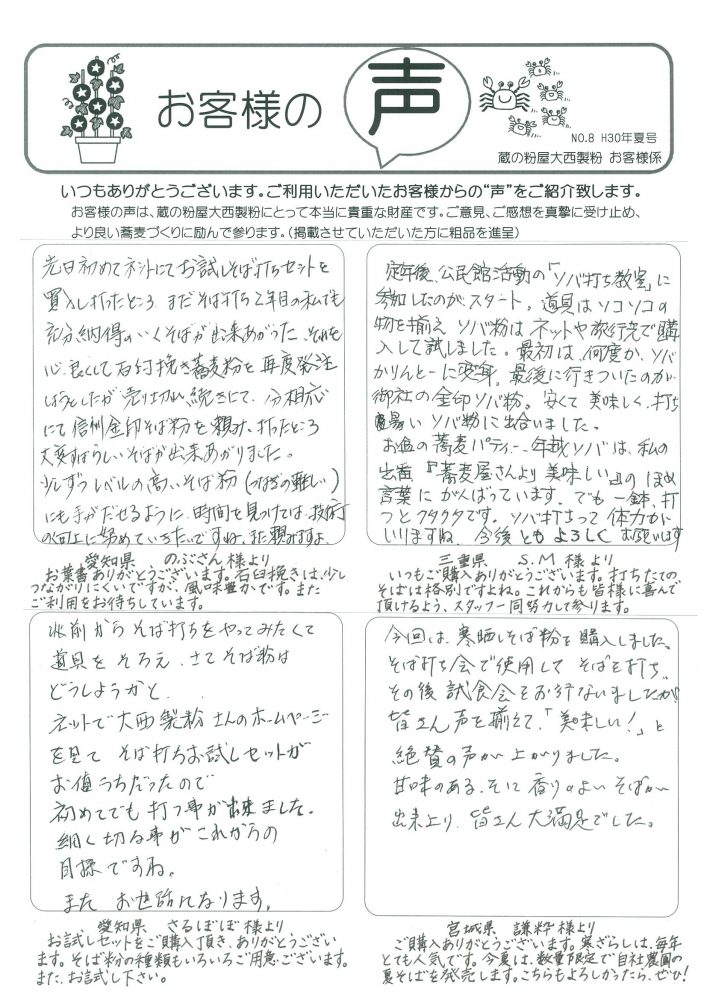 お客様の声
NO.8 H30年夏号
蔵の粉屋大西製粉 お客様係
いつもありがとうございます。ご利用いただいたお客様からの“声”をご紹介致します。
お客様の声は、蔵の粉屋大西製粉にとって本当に貴重な財産です。ご意見、ご感想を真摯に受け止め、
より良い蕎麦づくりに励んで参ります。(掲載させていただいた方に粗品を進呈)
先日初めてネットにてお試しそば打ちセットを
買入し打ったところ、まだそば打ち2年目の私でも
充分納得のいくそばが出来あがった、それを
心良くして石臼挽き蕎麦粉を再度発注
しようとしたが売り切れ続きにて、分相応
にて信州金印そば粉を頼み、打ったところ
大変すばらしいそばが出来あがりました。
少しずつレベルの高いそば粉(つなぎの難しい)
にも手がだせるように、時間を見つけては、技術
の向上に努めていきたいですね、また頼みますよ、
愛知県 のぶさん様より
お葉書ありがとうございます。石臼挽きは、少し
つながりにくいですが、風味豊かです。また
ご利用をお待ちしています。
定年後、公民館活動の「ソバ打ち教室」に
参加したのが、スタート。道具はソコソコの
物を揃え ソバ粉は ネットや旅行先で購
入して試しました。最初は、何度か、ソバ
かりんとーに変身、最後に行きついたのが
御社の金印ソバ粉。安くて 美味しく、打ち
易い ソバ粉に出合いました。
お盆の蕎麦パティー、年越ソバは、私の
出番 『蕎麦屋さんより 美味しい』の ほめ
言葉に がんばっています。でも 一鉢、打
つと クタクタです。ソバ打ちって 体力が
いりますね、今後ともよろしく お願いします
三重県 S.M様より
いつもご購入ありがとうございます。打ちたての
そばは格別ですよね。これからも皆様に喜んで
頂けるよう、スタッフ一同努力して参ります。
以前からそば打ちをやってみたくて
道具をそろえ、さてそば粉は
どうしようかと、
ネットで大西製粉さんのホームページ
を見て そば打ちお試しセットが
お値うちだったので
初めてでも打つ事が出来ました。
細く切る事がこれからの
目標ですね。
また お世話になります。
愛知県 さるぼぼ様より
お試しセットをご購入頂き、ありがとうござい
ます。そば粉の種類もいろいろご用意ございます。
また、お試し下さい。
今回は、寒晒しそば粉を購入しました。
そば打ち会で使用して そばを打ち、
その後 試食会をお行ないましたが
皆さん声を揃えて、「美味しい!」と
絶賛の声が上がりました。
甘味のある、そして香りのよい そばが
出来上り、皆さん大満足でした。
宮城県 謙粋様より
ご購入ありがとうございます。寒ざらしは、毎年
とても人気です。今夏は、数量限定で自社農園の
夏そばを発売します。こちらもよろしかったら、ぜひ!